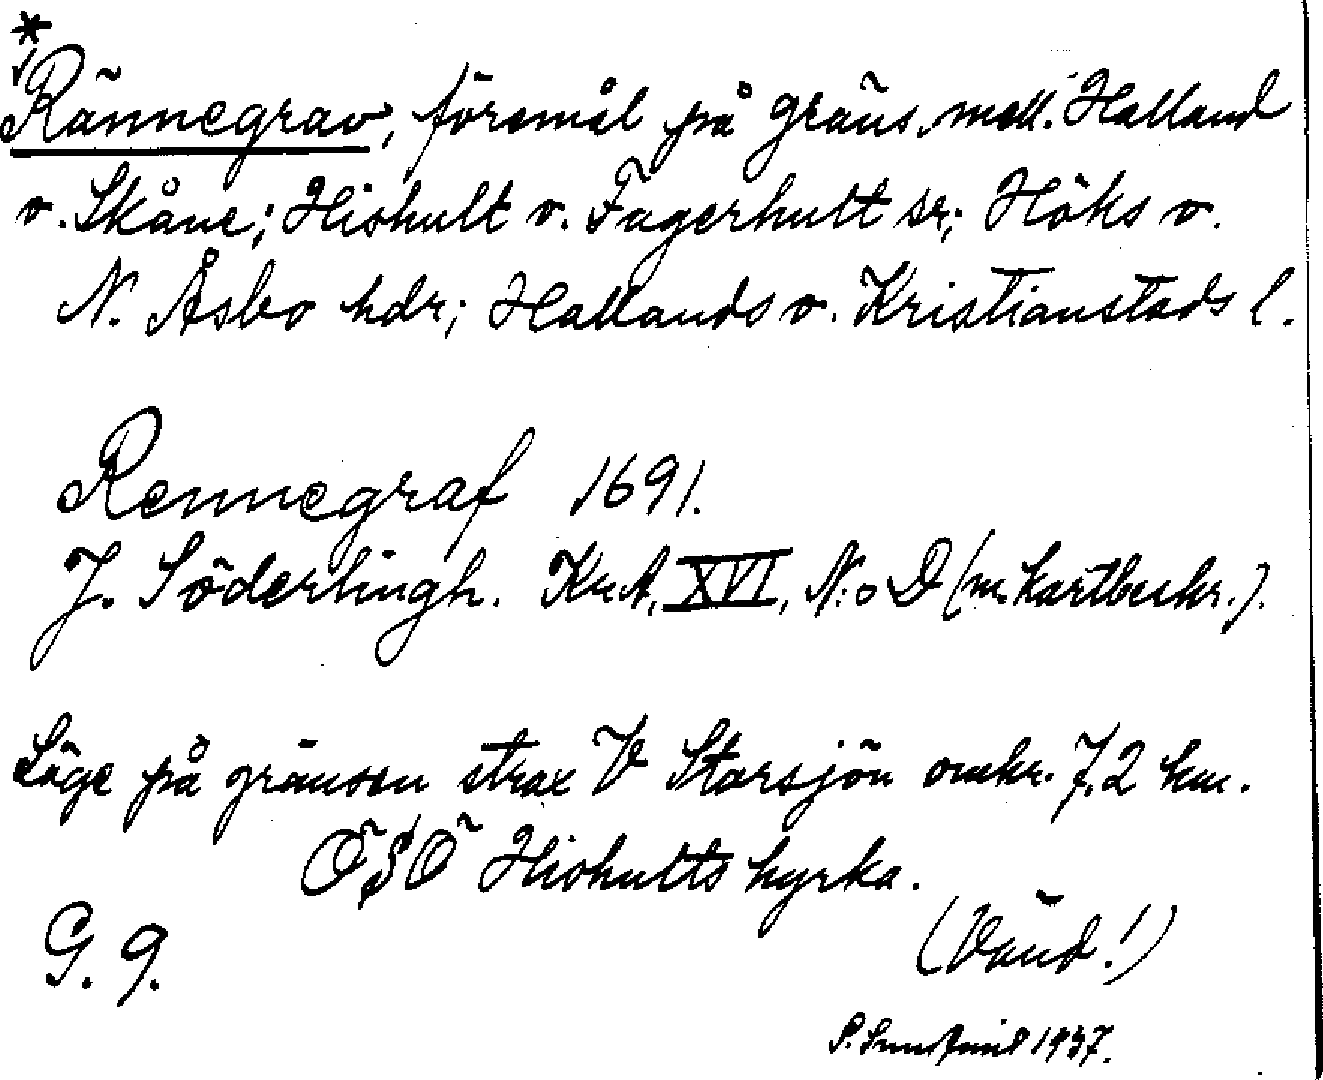 *
✓
Rännegrav, föremål på gräns. mell. Halland
o. Skåne; Hishult o. Fagerhult sr; Höks o.
N. Åsbo hdr; Hallands o. Kristianstads l.
Rennegraf 1691.
J. Söderlingh. Kr.A. XVI, N:o D (m. kartbeskr.).
Läge på gränsen strax V Storsjön omkr. 7,2 km.
ÖSÖ Hishults kyrka.
G. 9.
(Vänd!)
P. 1937.